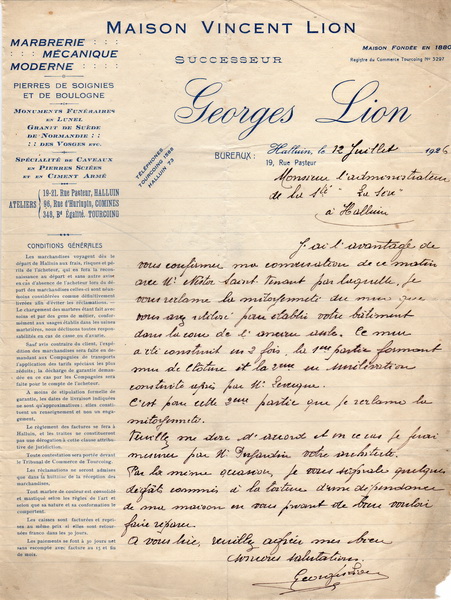 MAISON VINCENT LION
MARBRERIE : : :
: : : MÉCANIQUE
MODERNE : : : :
PIERRES DE SOIGNIES
ET DE BOULOGNE
MONUMENTS FUNÉRAIRES
EN LUNEL
GRANIT DE SUÈDE
DE NORMANDIE : :
: : DES VOSGES ETC.
SPÉCIALITÉ DE CAVEAUX
EN PIERRES SCIÉES
ET EN CIMENT ARMÉ
ATELIERS
19-21, Rue Pasteur, HALLUIN
96, Rue d'Hurlupin, COMINES
349, Bd Égalité, TOURCOING
SUCCESSEUR
MAISON FONDÉE EN 1880
Registre du Commerce Tourcoing No 3297
Georges Lion
TÉLÉPHONES
TOURCOING 1688
HALLUIN 73
BUREAUX :
Halluin, le 12 Juillet 1926
19, Rue Pasteur
Monsieur l'administrateur
de la Sté
à Halluin
J'ai l'avantage de
vous confirmer ma conversation de ce matin
avec Mr Nestor Saint Venant par laquelle, je
vous réclame la mitoyenneté du mur que
vous avez pour établir votre bâtiment
dans la cour de l'ancien. Ce mur
a été construit en 2 fois, la 1ère partie formant
mur de clôture et la 2ème en surélévation
construite après par Mr
C'est pour cette 2ème partie que je réclame la
mitoyenneté.
Veuillez me dire d'accord et en ce cas je ferai
mesurer par Mr Dujardin votre architecte.
Par la même occasion, je vous signale quelques
dégâts commis à la toiture d'une dépendance
de ma maison en vous priant de bien vouloir
faire réparer.
A vous lire, veuillez agréer mes bien
sincères salutations.
Georges Lion
CONDITIONS GÉNÉRALES
Les marchandises voyagent dès le
départ de Halluin aux frais, risques et pé-
rils de l'acheteur, qui en fera la recon-
naissance au départ et sans autre avis
en cas d'absence de l'acheteur lors du
départ des marchandises celles-ci sont
néanmoins considérées comme définitivement
livrées afin d'éviter les réclamations. —
Le chargement des marbres étant fait avec
soin et par des gens de métier, confor-
mément aux usages établis dans les usines
marbrières, nous déclinons toutes respon-
sabilités en cas de casse ou d'avarie.
Sauf avis contraire du client, l'expé-
dition des marchandises sera faite en de-
mandant aux Compagnies de transports
l'application des tarifs spéciaux les plus
réduits, la décharge de garantie deman-
dée en ce cas par les Compagnies sera
faite pour le compte de l'acheteur.
A moins de stipulation formelle de
garantie, les dates de livraison indiquées
ne sont qu'approximatives : elles consti-
tuent un renseignement et non un enga-
gement.
Le règlement des factures se fera à
Halluin, et les traites ne constitueront
pas une dérogation à cette clause attribu-
tive de juridiction.
Toute contestation sera portée devant
le Tribunal de Commerce de Tourcoing.
Les réclamations ne seront admises
que dans la huitaine de la réception des
marchandises.
Tout marbre de couleur est consolidé
et mastiqué selon les règles de l'art et
selon que sa nature et sa conformation le
comportent.
Les caisses sont facturées et repri-
ses au même prix si elles sont retour-
nées franco dans les 30 jours.
Les payements se font à 30 jours net
sans escompte avec facture au 15 et fin
de mois.